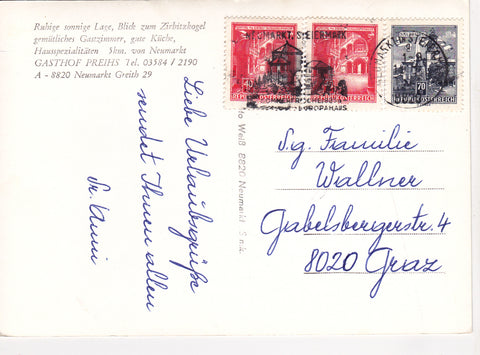 Ruhige sonnige Lage, Blick zum Zirbitzkogel
gemütliches Gastzimmer, gute Küche,
Hausspezialitäten 5km. von Neumarkt
GASTHOF PREIHS Tel. 03584 / 2190
A - 8820 Neumarkt Greith 29
NEUMARKT, STEIERMARK
EUROPAHAUS
REPUBLIK ÖSTERREICH
REPUBLIK ÖSTERREICH
70
REPUBLIK ÖSTERREICH
Weiß 8820 Neumarkt
Liebe Urlaubsgrüße
sendet Ihnen allen
Sr. Anni
S.g. Familie
Wallner
Gabelsbergerstr. 4
8020 Graz